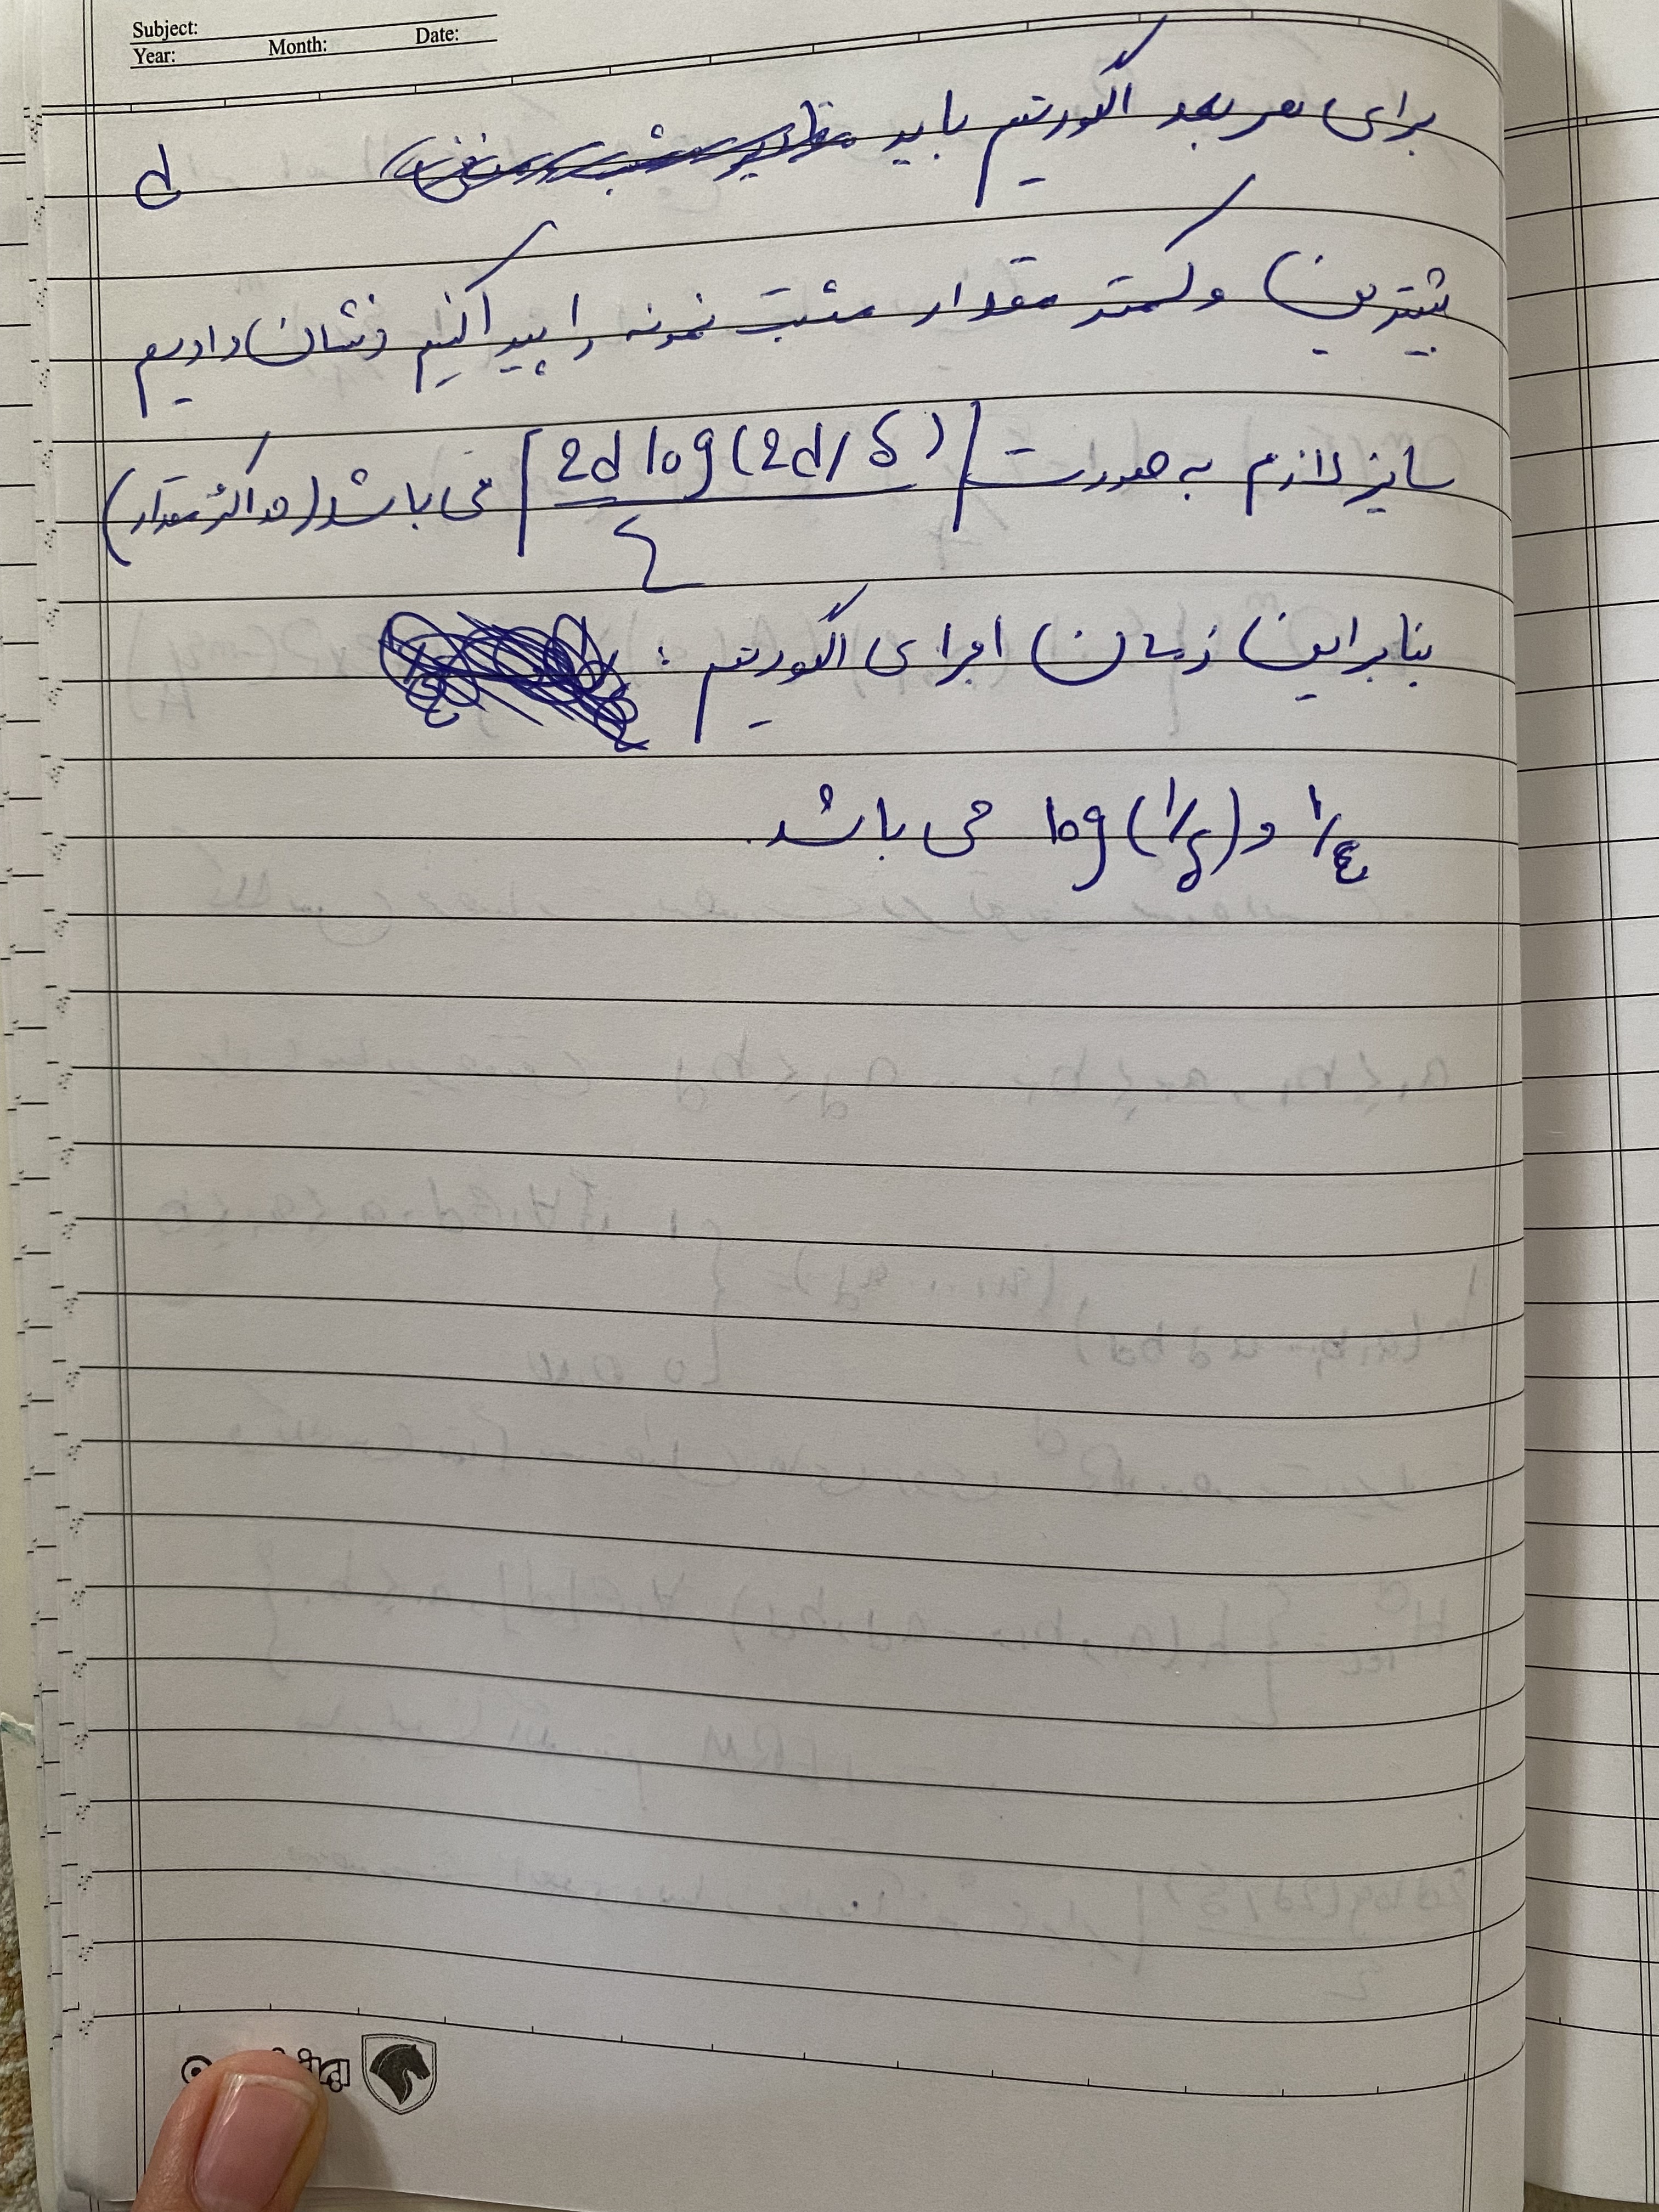 Subject:
Year: Month: Date:
برای هر بعد الگوریتم باید d
بیشترین و کمتر مقدار مثبت نمونه را پیدا کنیم و نشان دادیم
سایز لازم به صورت ⌈2d log(2d/δ)/ε⌉ می باشد (حداکثر مقدار)
بنابراین زمان اجرای الگوریتم :
1/ε و log(1/δ) می باشد.